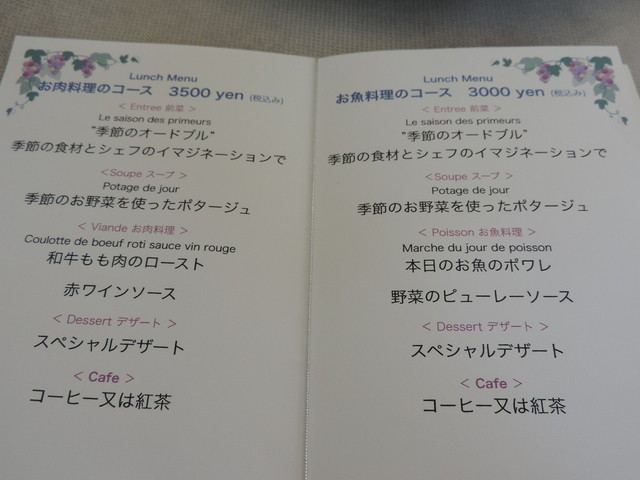 Lunch Menu
お肉料理のコース 3500 yen (税込み)
< Entree 前菜 >
Le saison des primeurs
"季節のオードブル"
季節の食材とシェフのイマジネーションで
<Soupe スープ >
Potage de jour
季節のお野菜を使ったポタージュ
< Viande お肉料理 >
Coulotte de boeuf roti sauce vin rouge
和牛もも肉のロースト
赤ワインソース
< Dessert デザート >
スペシャルデザート
< Cafe >
コーヒー又は紅茶
Lunch Menu
お魚料理のコース 3000 yen (税込み)
< Entree 前菜 >
Le saison des primeurs
"季節のオードブル"
季節の食材とシェフのイマジネーションで
<Soupe スープ >
Potage de jour
季節のお野菜を使ったポタージュ
< Poisson お魚料理 >
Marche du jour de poisson
本日のお魚のポワレ
野菜のピューレーソース
< Dessert デザート >
スペシャルデザート
< Cafe >
コーヒー又は紅茶